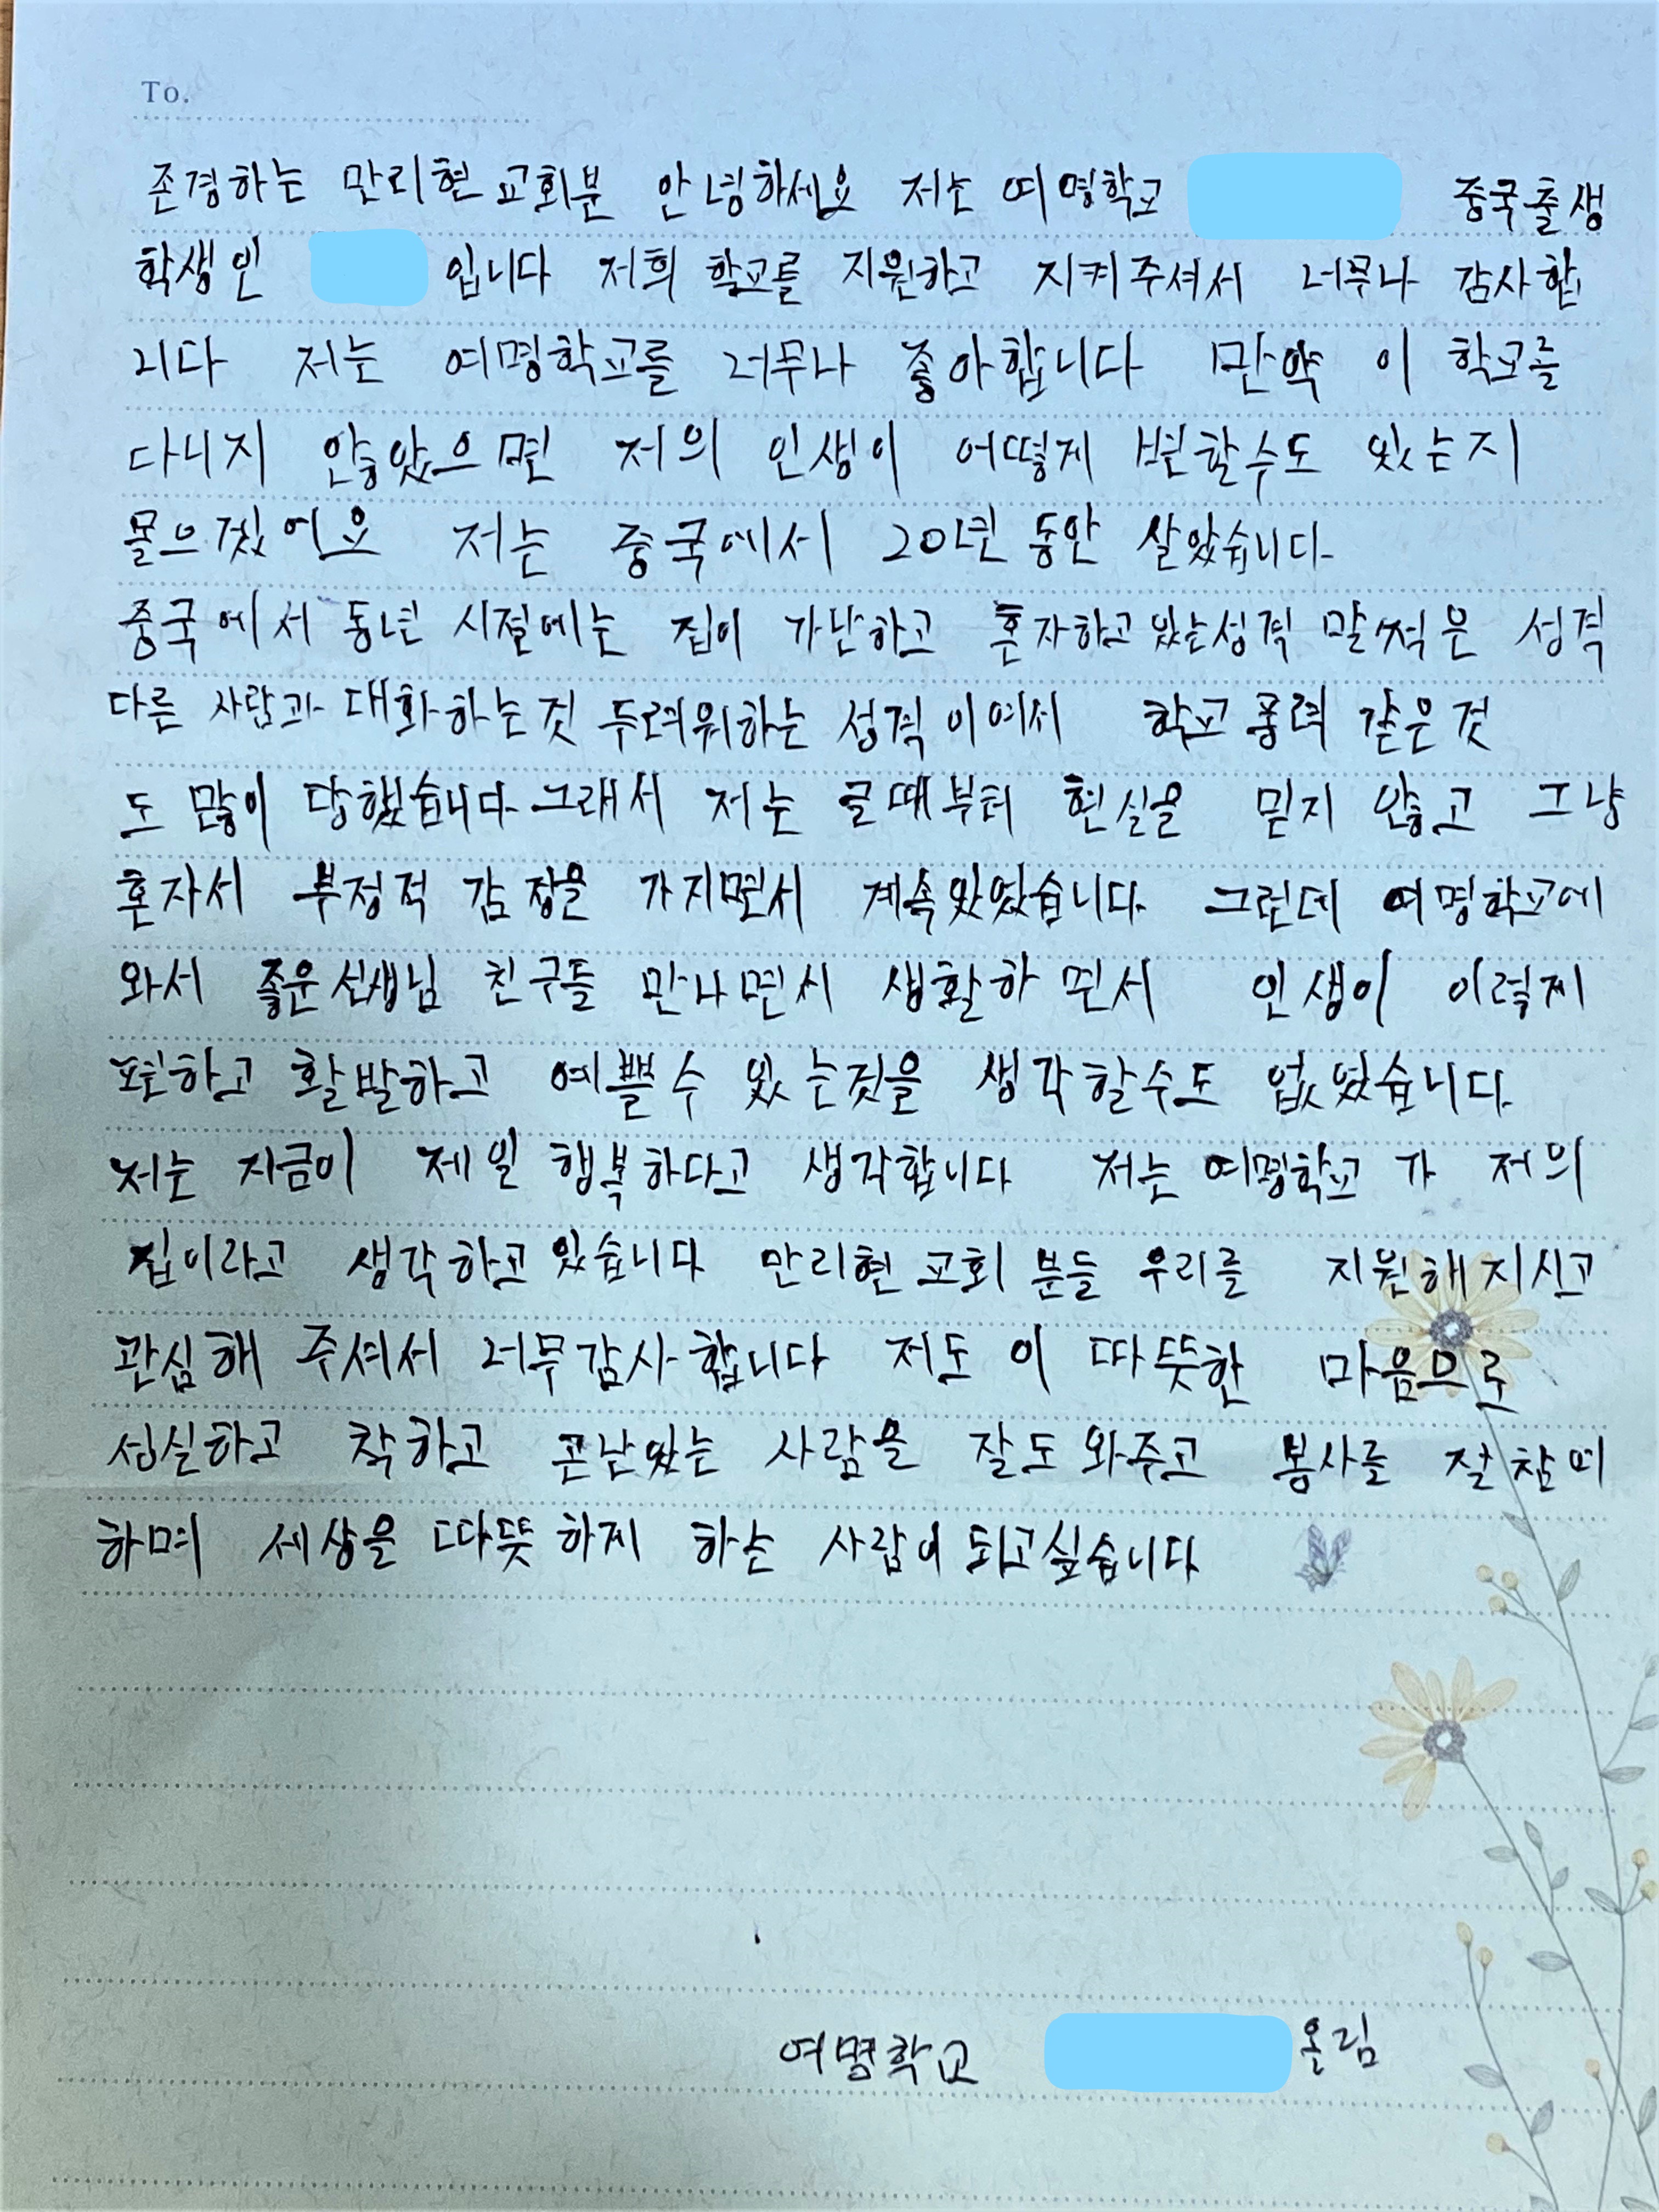 To.
존경하는 만리현교회분 안녕하세요 저는 여명학교 중국출생
학생인 입니다 저희 학교를 지원하고 지켜주셔서 너무나 감사합
니다 저는 여명학교를 너무나 좋아합니다 만약 이 학교를
다니지 않았으면 저의 인생이 어떻게 변할수도 있는지
몰으겠어요 저는 중국에서 20년 동안 살았습니다
중국에서 동년 시절에는 집이 가난하고 혼자하고 있는성격 말쩍은 성격
다른 사람과 대화하는것 두려워하는 성격이여서 학교풍력 같은것
도 많이 당했습니다 그래서 저는 클때부터 현실을 믿지 않고 그냥
혼자서 부정적 감정을 가지면서 계속있었습니다 그런데 여명학교에
와서 좋운선생님 친구들 만나면서 생활하면서 인생이 이렇제
편하고 활발하고 예쁠수 있는것을 생각할수도 없었습니다
저는 지금이 제일 행복하다고 생각합니다 저는 여명학교가 저의
집이라고 생각하고있습니다 만리현교회 분들 우리를 지원해지시고
관심해 주셔서 너무감사합니다 저도 이 따뜻한 마음으로
성실하고 착하고 곤난있는 사람을 잘도와주고 봉사를 잘참여
하며 세상을 따뜻하제 하는 사람이 되고싶습니다
여명학교 올림